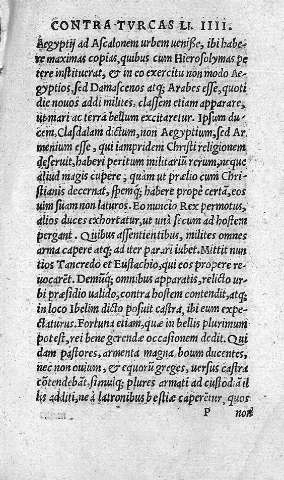 CONTRA TVRCAS LI. IIII.
Aegyptij ad Ascalonem urbem uenisse, ibi habe
re maximas copias, quibus cum Hierosolymas pe
tere instituerat, & in eo exercitu non modo Ae-
gyptios, sed Damascenos atq; Arabes esse, quoti
die nouos addi milites, classem etiam apparare,
ut mari ac terra bellum excitaretur. Ipsum du-
cem, Clasdalam dictum, non Aegyptium, sed Ar
menium esse, qui iampridem Christi religionem
deseruit, haberi peritum militariũ rerum, neque
aliud magis cupere, quàm ut prælio cum Chri-
stianis decernat, spemq; habere propè certã, eos
uim suam non laturos. Eo nuncio Rex permotus,
alios duces exhortatur, ut unà secum ad hostem
pergant. Quibus assentientibus, milites omnes
arma capere atq; ad iter parari iubet. Mittit nun
tios Tancredo et Eustachio, qui eos propere re-
uocarẽt. Demũq; omnibus apparatis, relicto ur-
bi præsidio ualido, contra hostem contendit, atq;
in loco Ibelim dicto posuit castra, ibi eum expe-
ctaturus. Fortuna etiam, quæ in bellis plurimum
potest, rei bene gerendæ occasionem dedit. Qui
dam pastores, armenta magna, boum ducentes,
nec non ouium, & equorũ greges, uersus castra
cõtendebãt, simulq; plures armati ad custodiã il
lis additi, ne à latronibus bestiæ caperẽtur, quos
P non